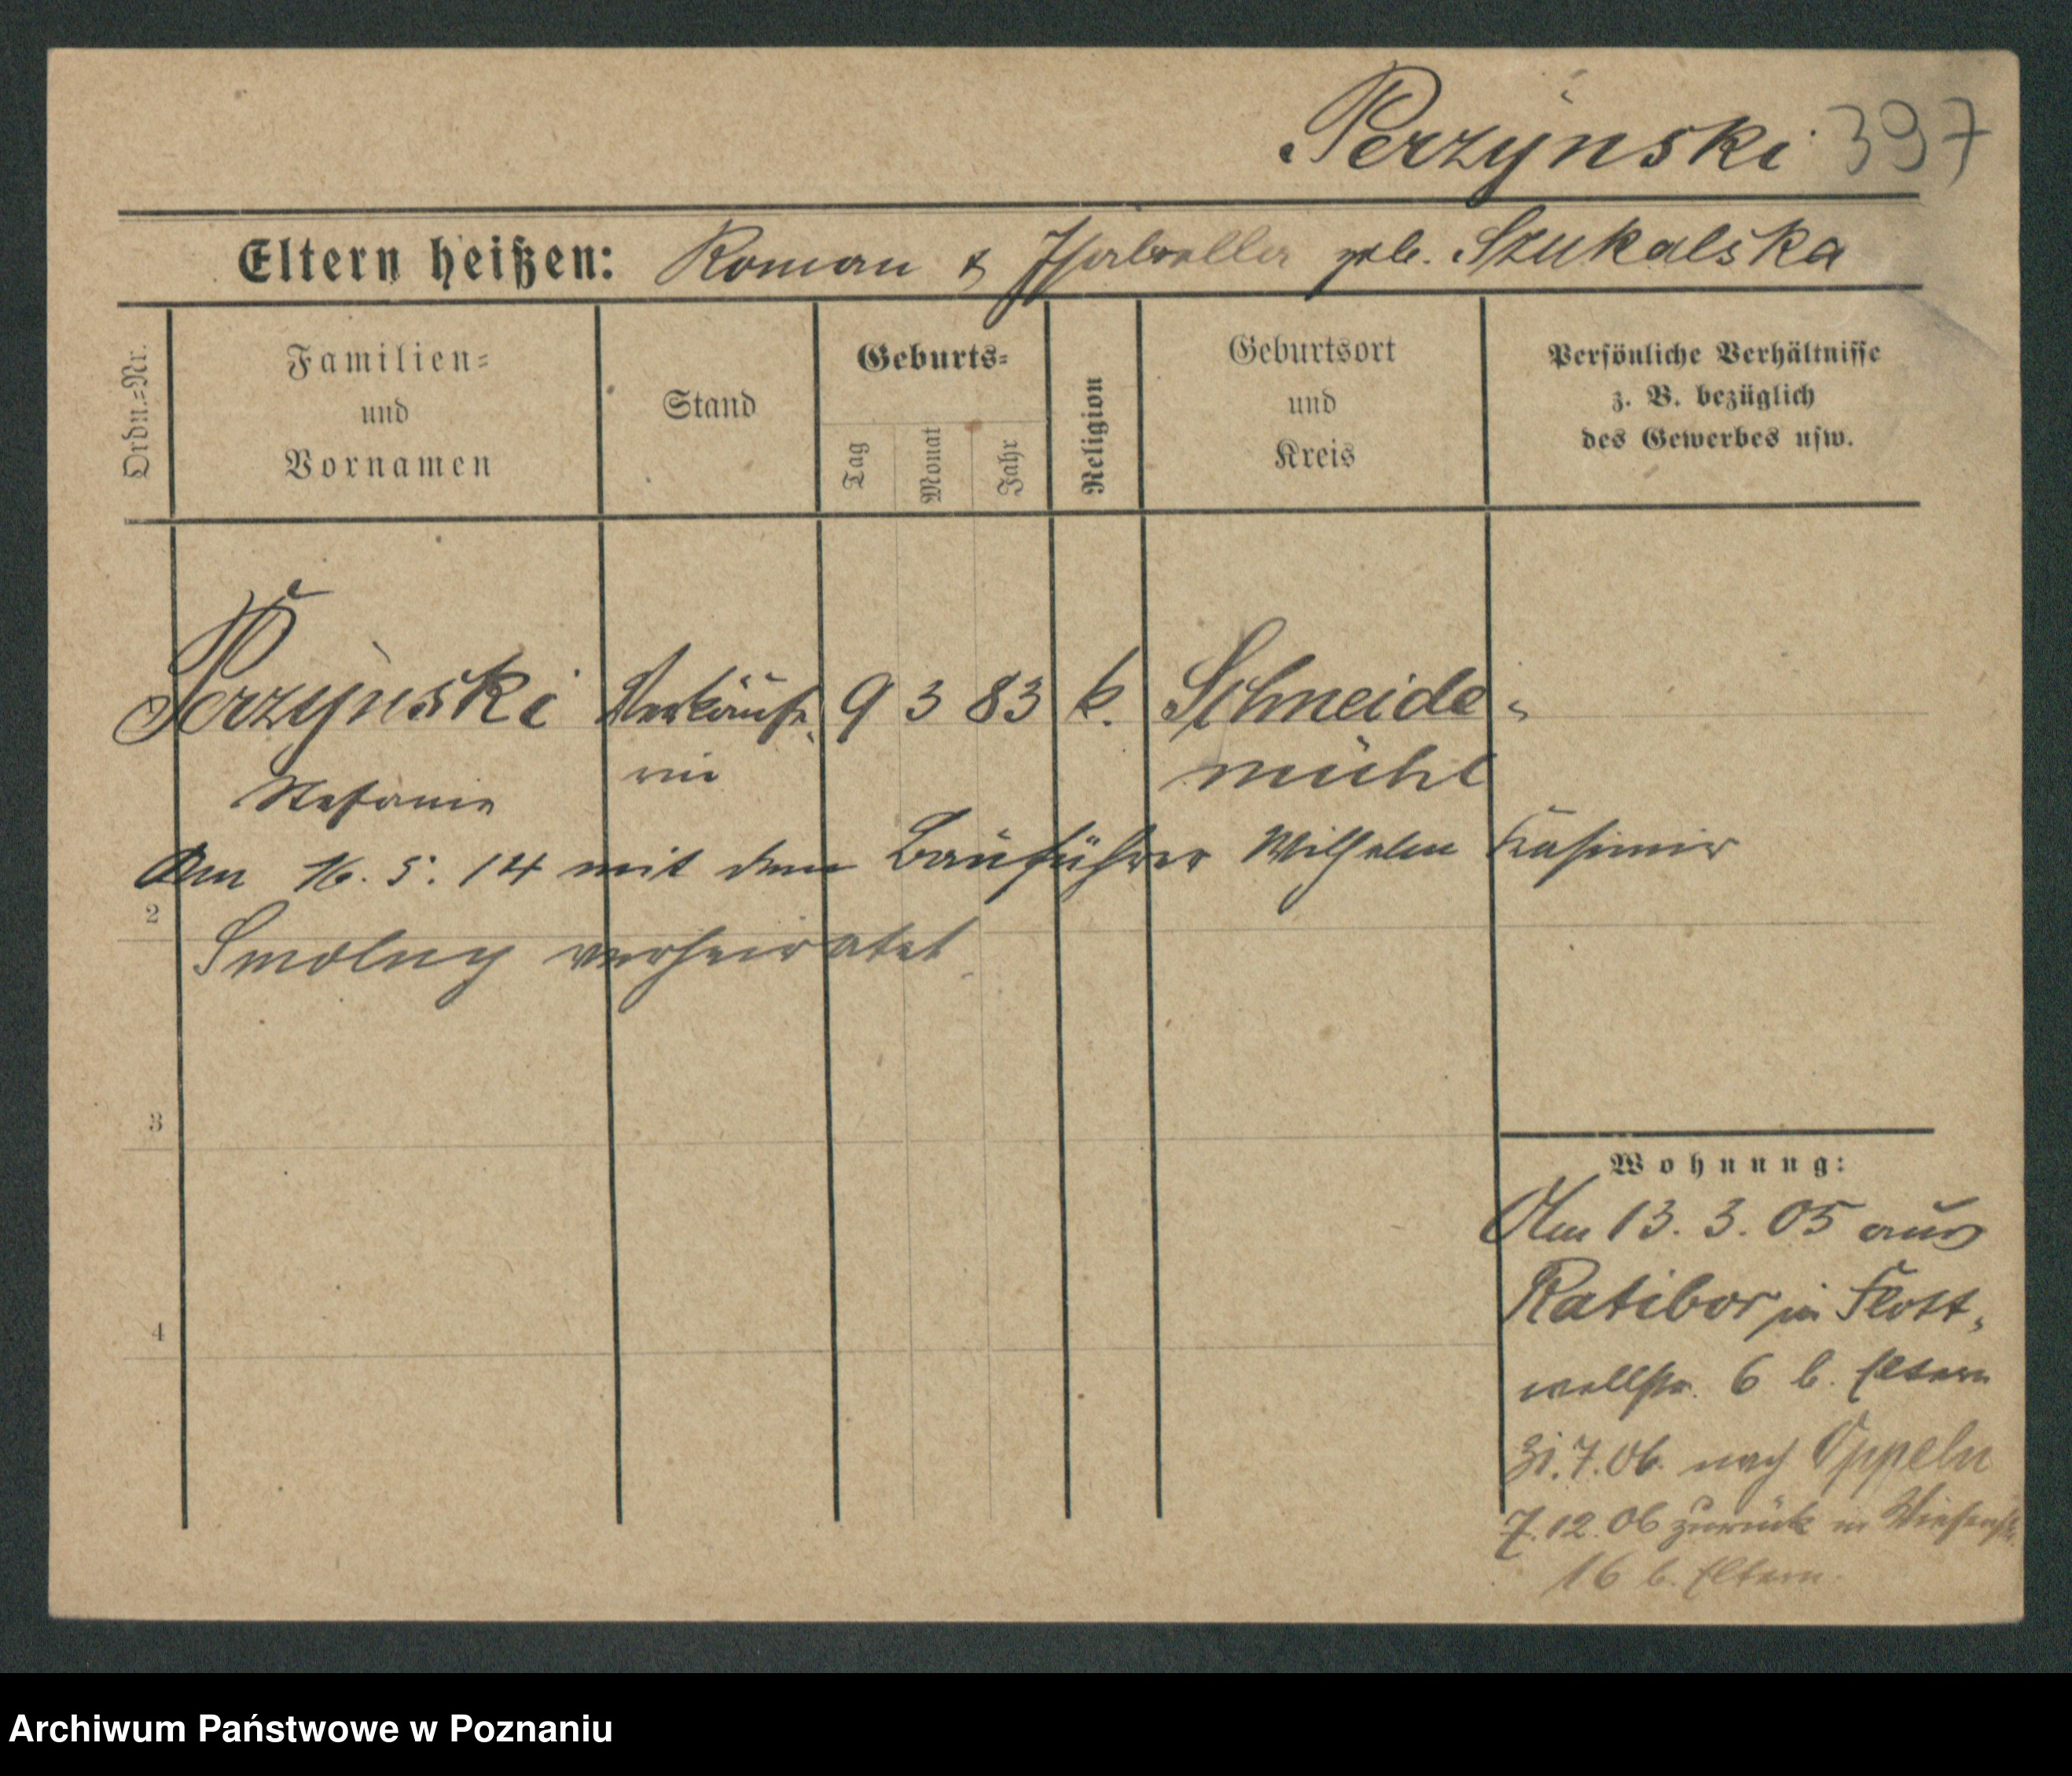 Perzyński 397
Eltern heißen: Roman & Isabella geb. Szukalska
Ordn.=Nr.
Familien=
und
Vornamen
Stand
Geburts=
Tag
Monat
Jahr
Religion
Geburtsort
und
Kreis
Persönliche Verhältnisse
z. B. bezüglich
des Gewerbes usw.
Perzyński Verkäufe, 9 3 83 k. Schneide-
Stefanie rin mühl
Am 16. 5. 14 mit dem Bauführer Wilhelm Kasimir
2
Smolny verheiratet.
3
4
Wohnung:
Am 13. 3. 05 aus
Ratibor in Flott,
wellstr. 6 b. Eltern
31.7.06. nach Oppeln
7.12.06 zurück in Wiesenstr.
16 b. Eltern.
Archiwum Państwowe w Poznaniu